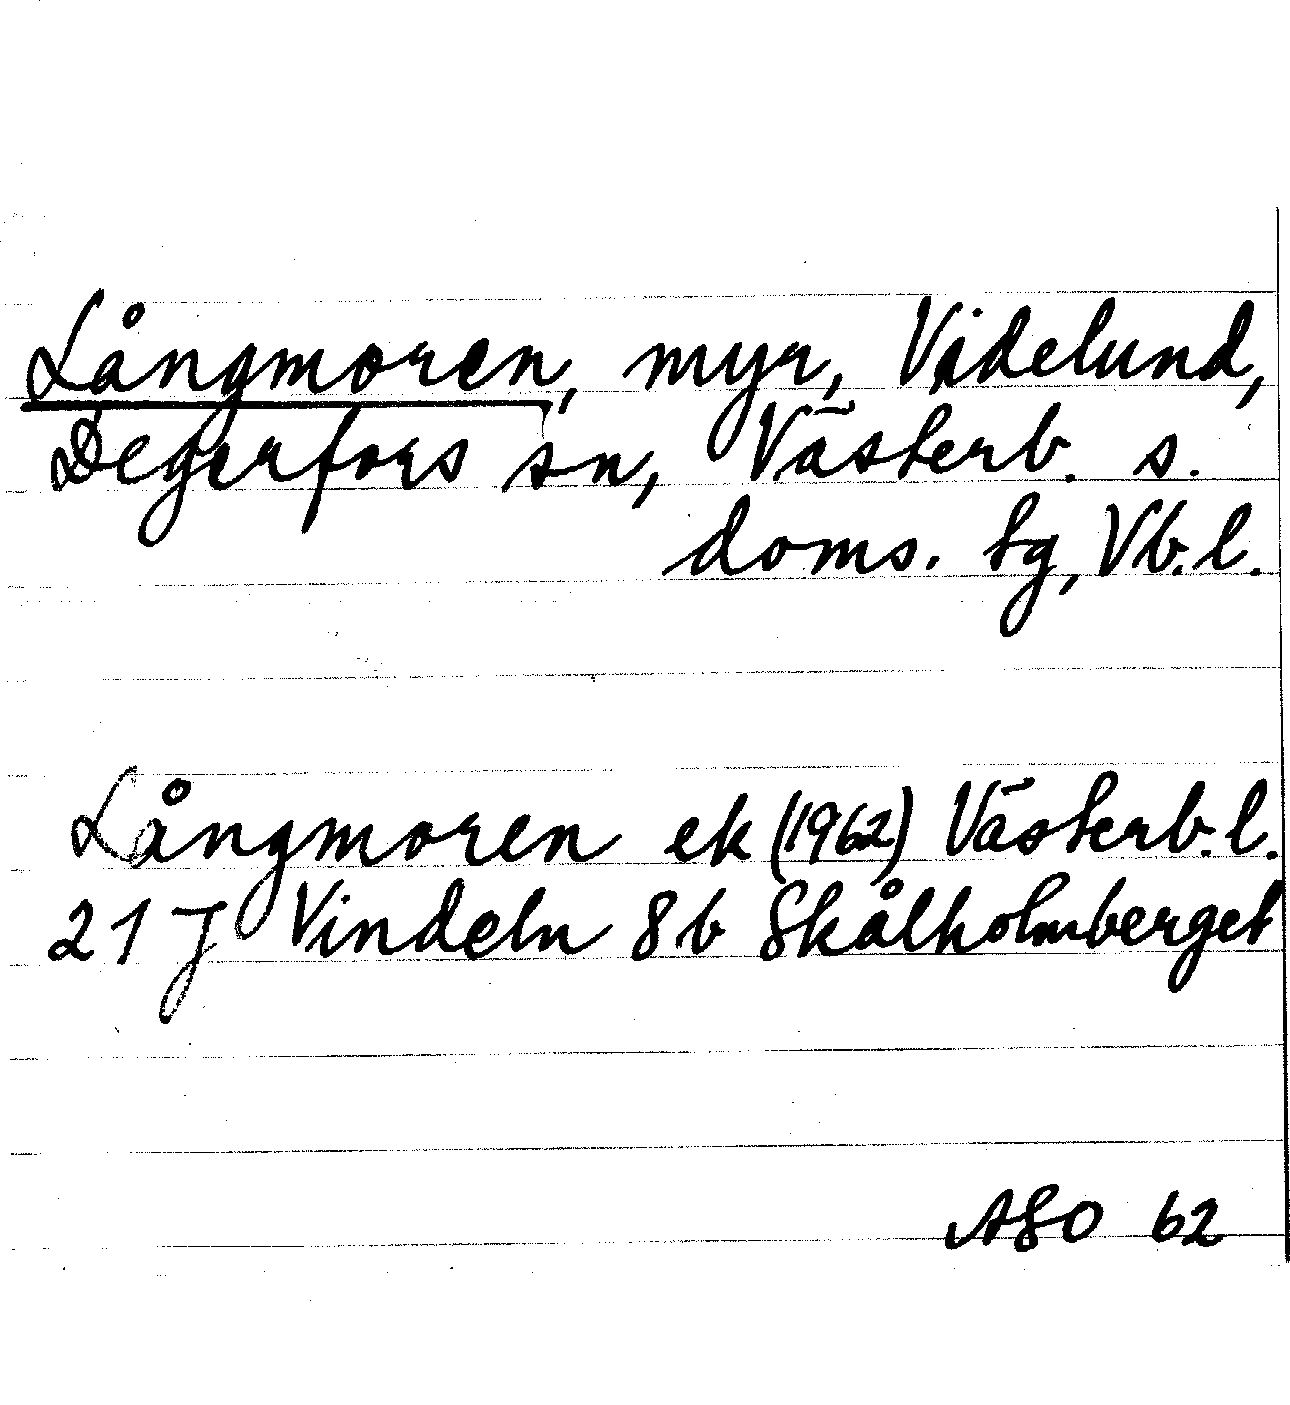 Långmoren, myr, Videlund,
Degerfors sn, Västerb. s.
doms. tg, Vb. l.
Långmoren ek (1962) Västerb. l.
21 J Vindeln 8b Skålholmberget
ASO 62